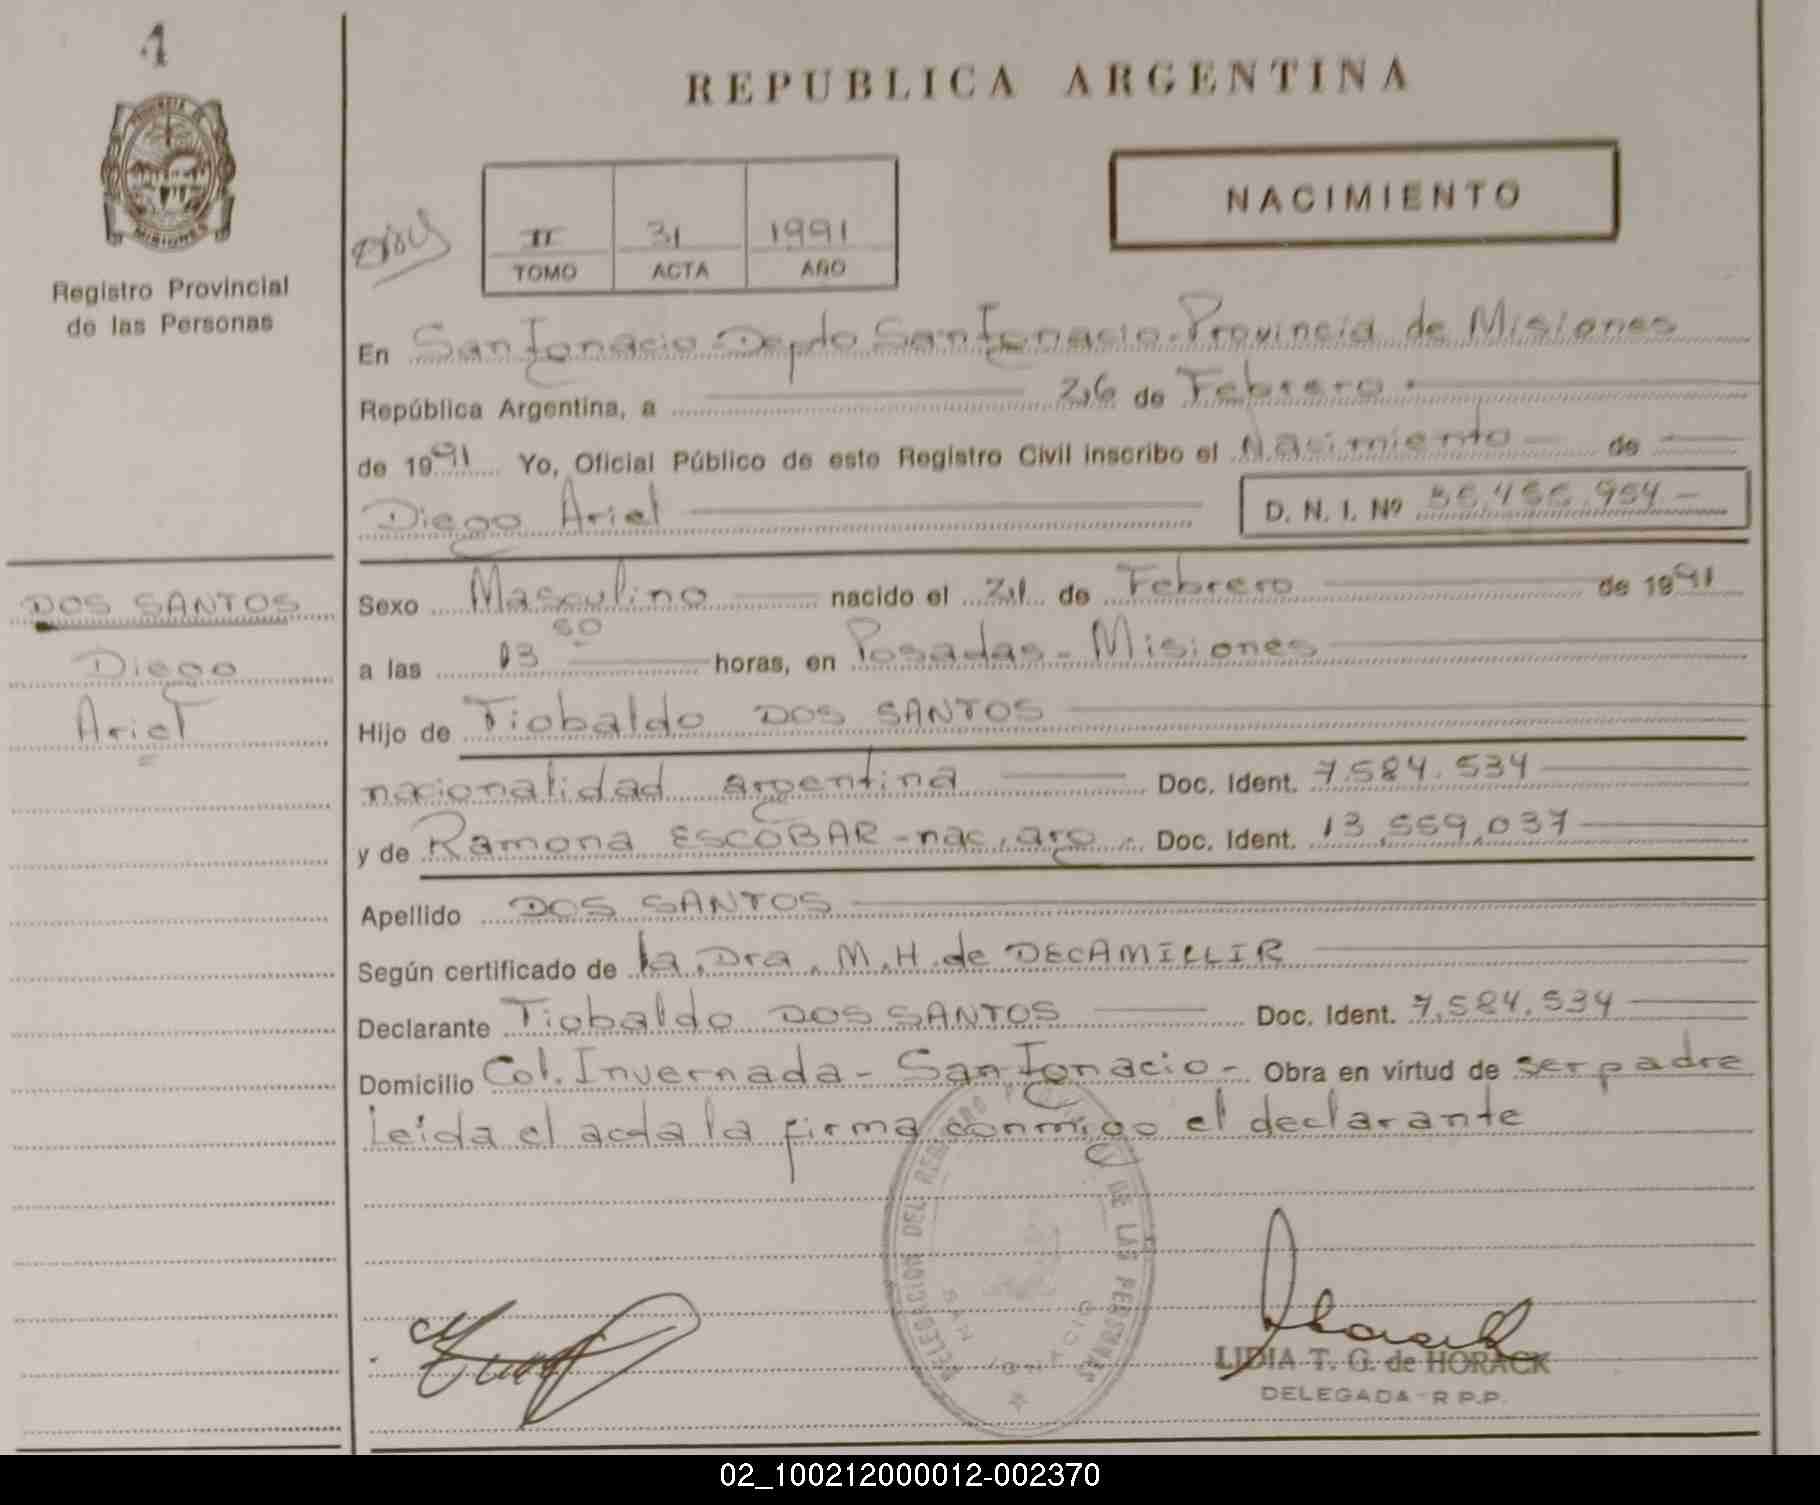 1
PROVINCIA
MISIONES
Registro Provincial
de las Personas
REPUBLICA ARGENTINA
NACIMIENTO
II 31 1991
TOMO ACTA AÑO
En San Ignacio Depto San Ignacio-Provincia de Misiones
República Argentina, a 26 de Febrero
de 1991 Yo, Oficial Público de este Registro Civil inscribo el Nacimiento de
Diego Ariel
D. N. I. Nº
DOS SANTOS
Diego
Ariel
Sexo Masculino nacido el 21 de Febrero de 1991
a las 13 50 horas, en Posadas - Misiones
Hijo de Tiobaldo DOS SANTOS
nacionalidad argentina Doc. Ident. 7.584.534
y de Ramona ESCOBAR - nac. arg. - Doc. Ident. 13.559.037
Apellido DOS SANTOS
Según certificado de la Dra. M.H. de DECAMILLIR
Declarante Tiobaldo DOS SANTOS Doc. Ident. 7.584.534
Domicilio Col. Invernada - San Ignacio - Obra en virtud de ser padre
Leída el acta la firma conmigo el declarante
DELEGACION DEL REGISTRO DE LAS PERSONAS
SAN IGNACIO
LIDIA T. G. de HORACK
DELEGADA - R.P.P.
02_100212000012-002370